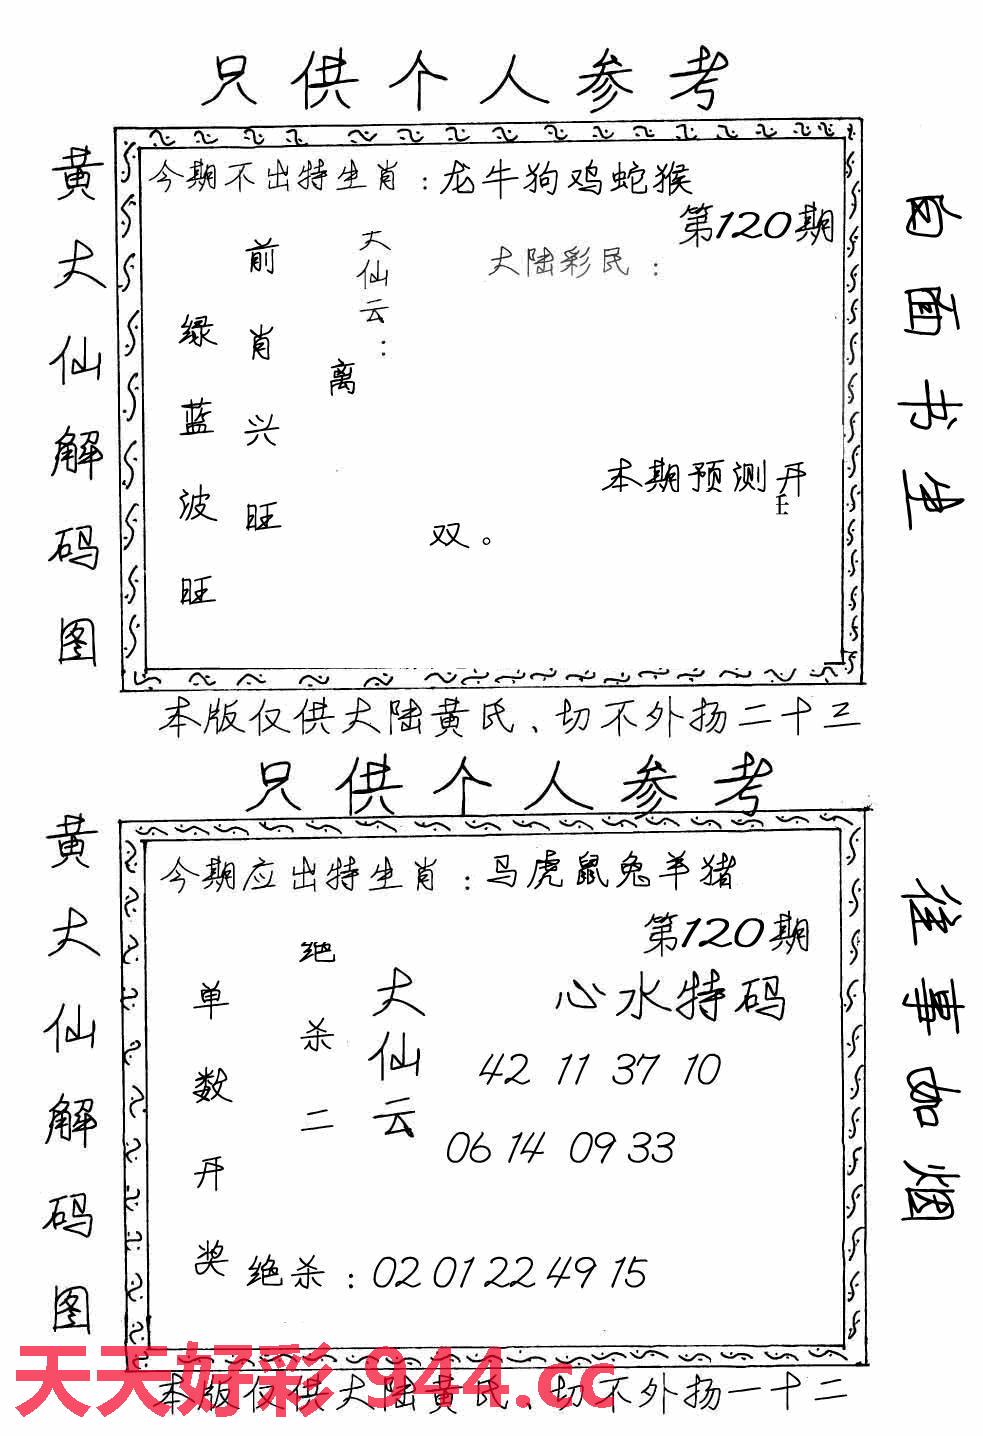 只供个人参考
黄大仙解码图
今期不出特生肖：龙牛狗鸡蛇猴
第120期
大陆彩民：
大仙云：
离
前肖兴旺
绿蓝波旺
本期预测开
双。
白面书生
本版仅供大陆黄氏、切不外扬二十三
只供个人参考
黄大仙解码图
今期应出特生肖：马虎鼠兔羊猪
第120期
心水特码
42 11 37 10
06 14 09 33
大仙云
绝杀二
单数开奖
绝杀：02 01 22 49 15
往事如烟
天天好彩 944.cc
本版仅供大陆黄氏、切不外扬一十二